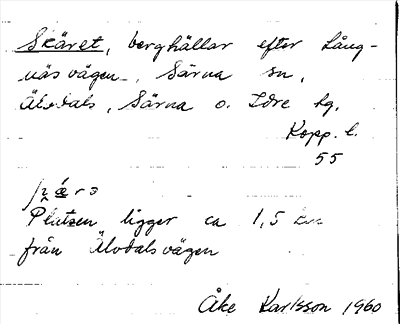 Skäret, berghällar efter Lång-
näsvägen, Särna sn,
Älvdals, Särna o. Idre tg,
Kopp. l.
55
Platsen ligger ca 1,5 km
från Älvdalsvägen
Åke Karlsson 1960